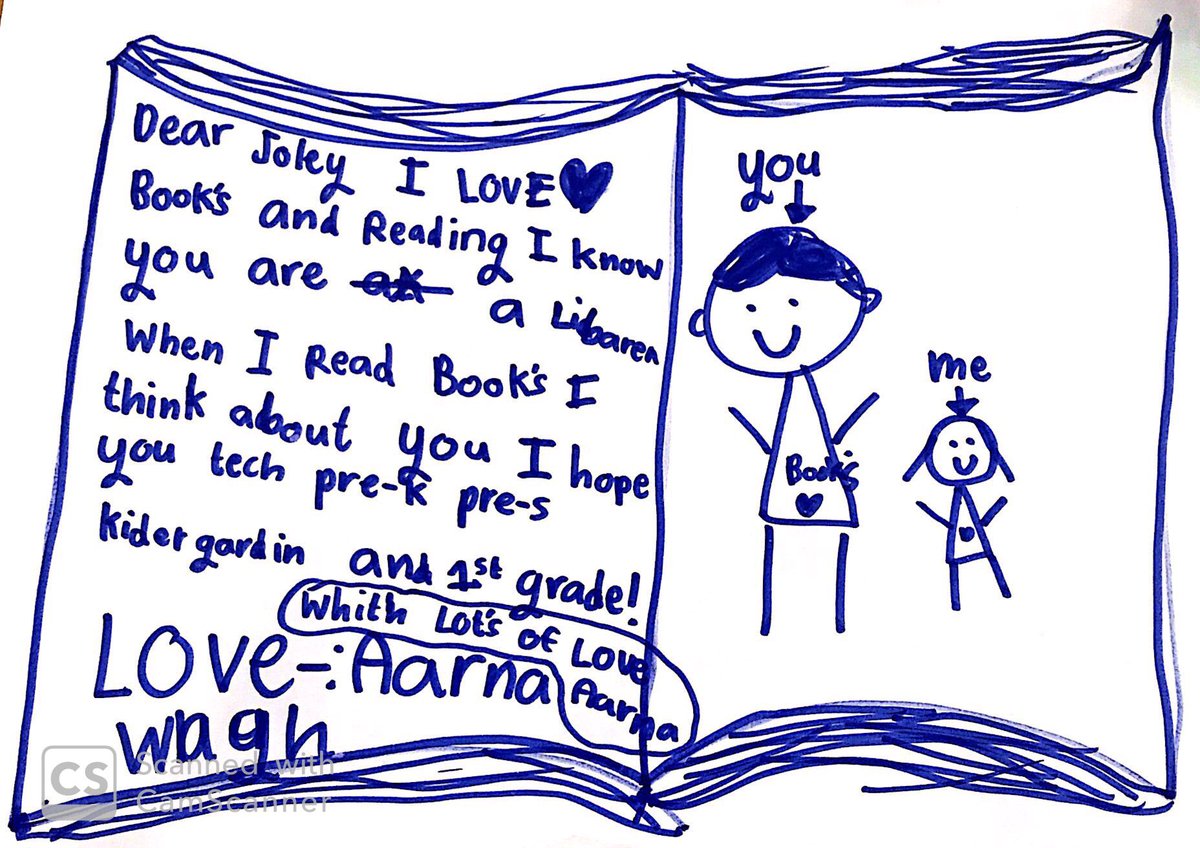 Dear Joley I LOVE
Book's and Reading I know
you are a Libaren
When I Read Book's I
think about you I hope
you tech pre-k pre-s
kidergardin and 1st grade!
Whith Lot's of Love
Aarna
Love-:Aarna
wagh
you
me
Book's
CS Scanned with
CamScanner